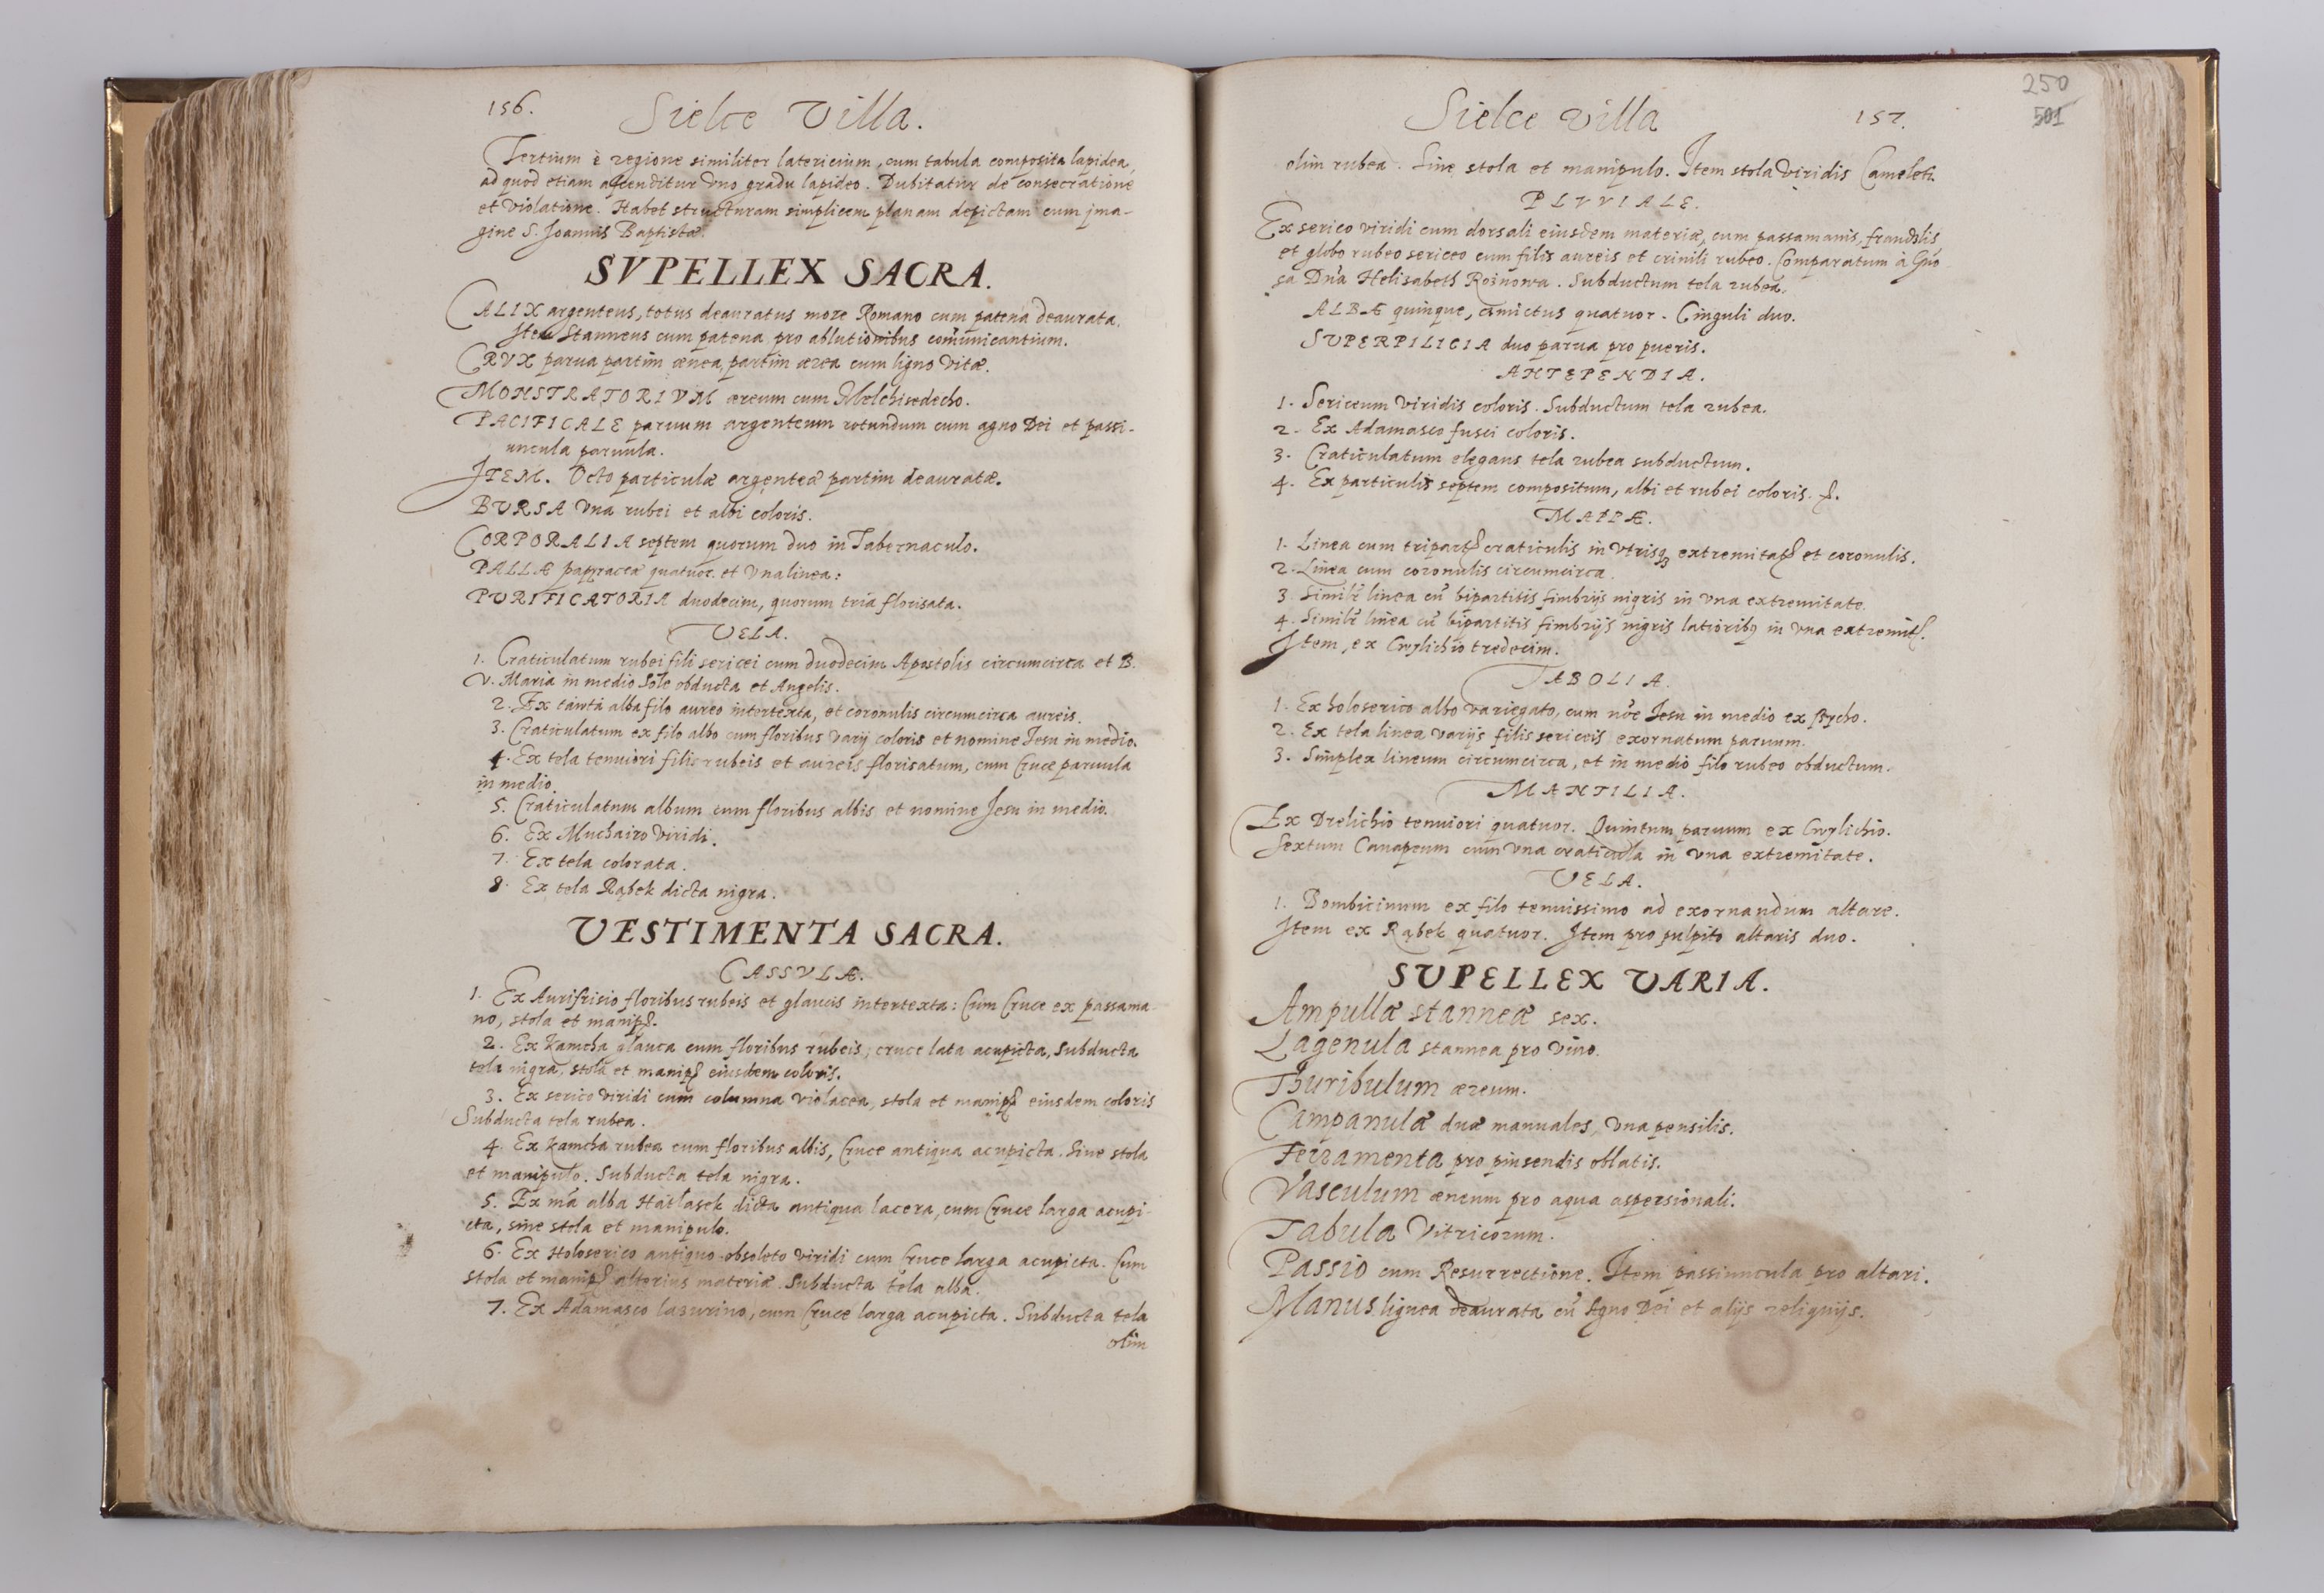 156. Sielce Villa.
Tertium è regione similiter latericium, cum tabula composita lapidea,
ad quod etiam ascenditur vno gradu lapideo. Dubitatur de consecratione
et violatione. Habet structuram simplicem planam depictam cum jma-
gine S. Joannis Baptistæ.
SVPELLEX SACRA.
CALIX argenteus, totus deauratus more Romano cum patena deaurata.
Item Stanneus cum patena pro ablutionibus comunicantium.
CRVX parua partim ænea, partim ærea cum ligno vitæ.
MONSTRATORIVM æreum cum Melchisedecho.
PACIFICALE paruum argenteum rotundum cum agno Dei et passi-
uncula paruula.
ITEM. Octo particulæ argenteæ partim deauratæ.
BVRSA vna rubei et albi coloris.
CORPORALIA septem quorum duo in Tabernaculo.
PALLÆ papyraceæ quatuor. et vna linea:
PVRIFICATORIA duodecim, quorum tria florisata.
VELA.
1. Craticulatum rubei fili sericei cum duodecim Apostolis circumcirca et B.
V. Maria in medio Sole obducta et Angelis.
2. Ex tainta alba filo aureo intertexta, et coronulis circumcirca aureis.
3. Craticulatum ex filo albo cum floribus varij coloris et nomine Jesu in medio.
4. Ex tela tenuiori filis rubeis et aureis florisatum, cum Cruce paruula
in medio.
5. Craticulatum album cum floribus albis et nomine Jesu in medio.
6. Ex Muchairo viridi.
7. Ex tela colorata.
8. Ex tela Rąbek dicta nigra.
VESTIMENTA SACRA.
CASSVLÆ.
1. Ex Aurifrisio floribus rubeis et glaucis intertexta: Cum Cruce ex passama-
no, stola et manip.
2. Ex Kamcha glauca cum floribus rubeis, cruce lata acupicta, Subducta
tela nigra, stola et manip eiusdem coloris.
3. Ex serico viridi cum columna violacea, stola et manip eiusdem coloris
Subducta tela rubea.
4. Ex Kamcha rubea cum floribus albis, Cruce antiqua acupicta. Sine stola
et manipulo. Subducta tela nigra.
5. Ex mâ alba Hatłasek dicta antiqua lacera, cum Cruce larga acupi-
cta, sine stola et manipulo.
6. Ex Holoserico antiquo obsoleto viridi cum Cruce larga acupicta. Cum
stola et manip alterius materiæ. Subducta tela alba.
7. Ex Adamasco lasurino, cum Cruce larga acupicta. Subducta tela
olim
250
501
Sielce Villa 157.
olim rubea. Sine stola et manipulo. Item stola viridis Cameleti.
PLVVIALE.
Ex serico viridi cum dorsali eiusdem materiæ, cum passamanis, frandzlis
et globo rubeo sericeo cum filis aureis et crinili rubeo. Comparatum à Gño
sa Dña Helisabeth Rożnowa. Subductum tela rubea.
ALBÆ quinque, amictus quatuor. Cinguli duo.
SVPERPILICIA duo parua pro pueris.
ANTEPENDIA.
1. Sericeum viridis coloris. Subductum tela rubea.
2. Ex Adamasco fusci coloris.
3. Craticulatum elegans tela rubea subductum.
4. Ex particulis septem compositum, albi et rubei coloris.
MAPPÆ.
1. Linea cum tripart craticulis in vtrisq extremitat et coronulis.
2. Linea cum coronulis circumcirca.
3. Similr linea cũ bipartitis fimbrijs nigris in vna extremitate.
4. Similr linea cũ bipartitis fimbrijs nigris latiorib in vna extremit.
Item, ex Cwylichio tredecim.
TABOLIA.
1. Ex holoserico albo variegato, cum noẽ Jesu in medio ex Psycho.
2. Ex tela linea varijs filis sericeis exornatum paruum.
3. Simplex lineum circumcirca, et in medio filo rubeo obductum.
MANTILIA.
Ex Drelichio tenuiori quatuor. Quintum paruum ex Cwylichio.
Sextum Canapeum cum vna craticula in vna extremitate.
VELA.
1. Bombicinum ex filo tenuissimo ad exornandum altare.
Item ex Rąbek quatuor. Item pro pulpito altaris duo.
SVPELLEX VARIA.
Ampullæ stanneæ sex.
Lagenula stannea pro vino.
Thuribulum æreum.
Campanulæ duæ manuales, vna pensilis.
Ferramenta pro pinsendis oblatis.
Vasculum æneum pro aqua aspersionali.
Tabula Vitricorum.
Passio cum Resurrectione. Item passiuncula pro altari.
Manus lignea deaurata cũ Agno Dei et alijs reliquijs.